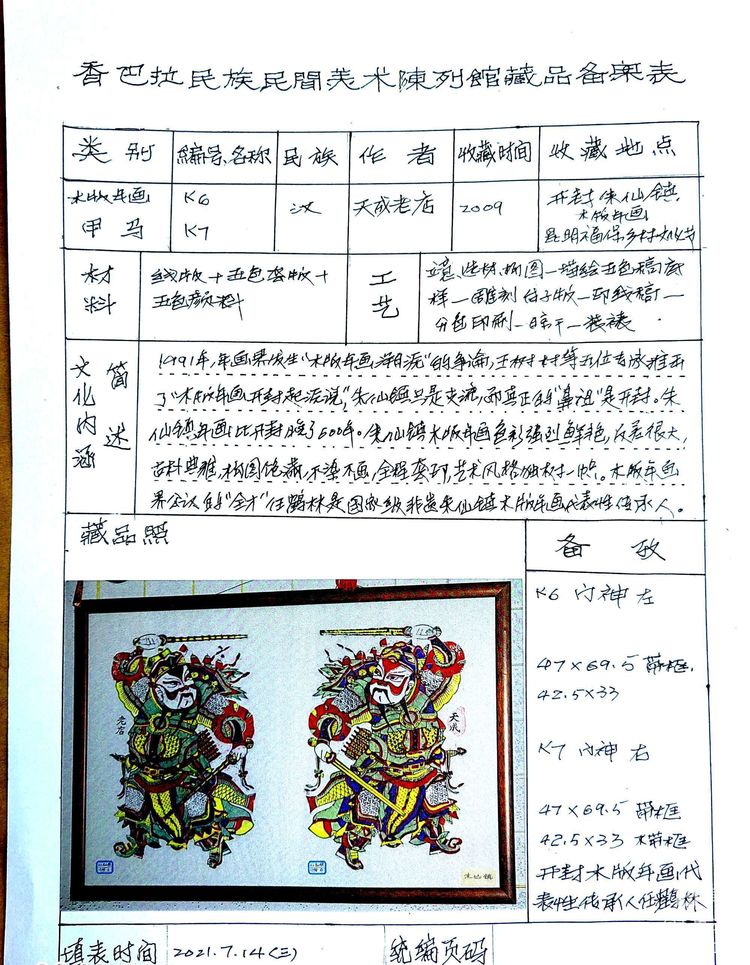 香巴拉民族民間美术陳列館藏品备案表
类别 編号、名称 民族 作者 收藏时间 收藏地点
木版年画 K6 汉 天成老店 2009 开封朱仙镇
木版年画
甲马 K7 昆明福保乡村文化节
材料 线版+五色套版+
五色颜料
工艺 构图一描绘五色稿底
样一雕刻份子版一印线稿一
分色印刷一晾干一装裱
文化内涵 简述
1991年,年画界发生"木版年画溯源"的争论,王树村等五位专家推出
了"木版年画开封起源说",朱仙镇只是支流,而真正的"鼻祖"是开封。朱
仙镇年画比开封晚了600年。朱仙镇木版年画色彩强烈鲜艳,反差很大,
古朴典雅,构图饱满,不染不画,全程套印,艺术风格独树一帜。木版年画
界公认的"全才"任鹤林是国家级非遗朱仙镇木版年画代表性传承人。
藏品照
备攷
K6 门神左
47×69.5 带框.
42.5×33
K7 门神右
47×69.5 带框
42.5×33 未带框
开封木版年画代
表性传承人任鹤林
老店
天成
朱仙镇
填表时间 2021.7.14(三) 统编页码